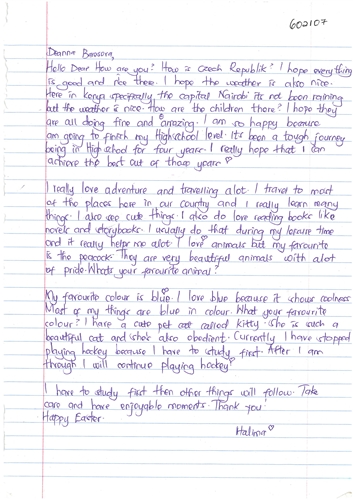 602107
Dianna Barosova,
Hello Dear How are you? How is Czech Republic? I hope everything
is good and nice there. I hope the weather is also nice.
Here in kenya specifically the capital Nairobi its not been raining
but the weather is nice. How are the children there? I hope they
are all doing fine and amazing. I am so happy because
am going to finish my Highschool level. It's been a tough journey
being in High school for four years. I really hope that I can
achieve the best out of those years
I really love adventure and travelling alot. I travel to most
of the places here in our country and I really learn many
things. I also see cute things. I also do love reading books like
novels and storybooks. I usually do that during my leisure time
and it really helps me alot. I love animals but my favourite
is the peacock. They are very beautiful animals with alot
of pride. Whats your favourite animal?
My favourite colour is blue. I love blue because it shows coolness.
Most of my things are blue in colour. What your favourite
colour? I have a cute pet cat called kitty. She is such a
beautiful cat and she's also obedient. Currently I have stopped
playing hockey because I have to study first. After I am
through I will continue playing hockey
I have to study first then other things will follow. Take
care and have enjoyable moments. Thank you!
Happy Easter.
Halima